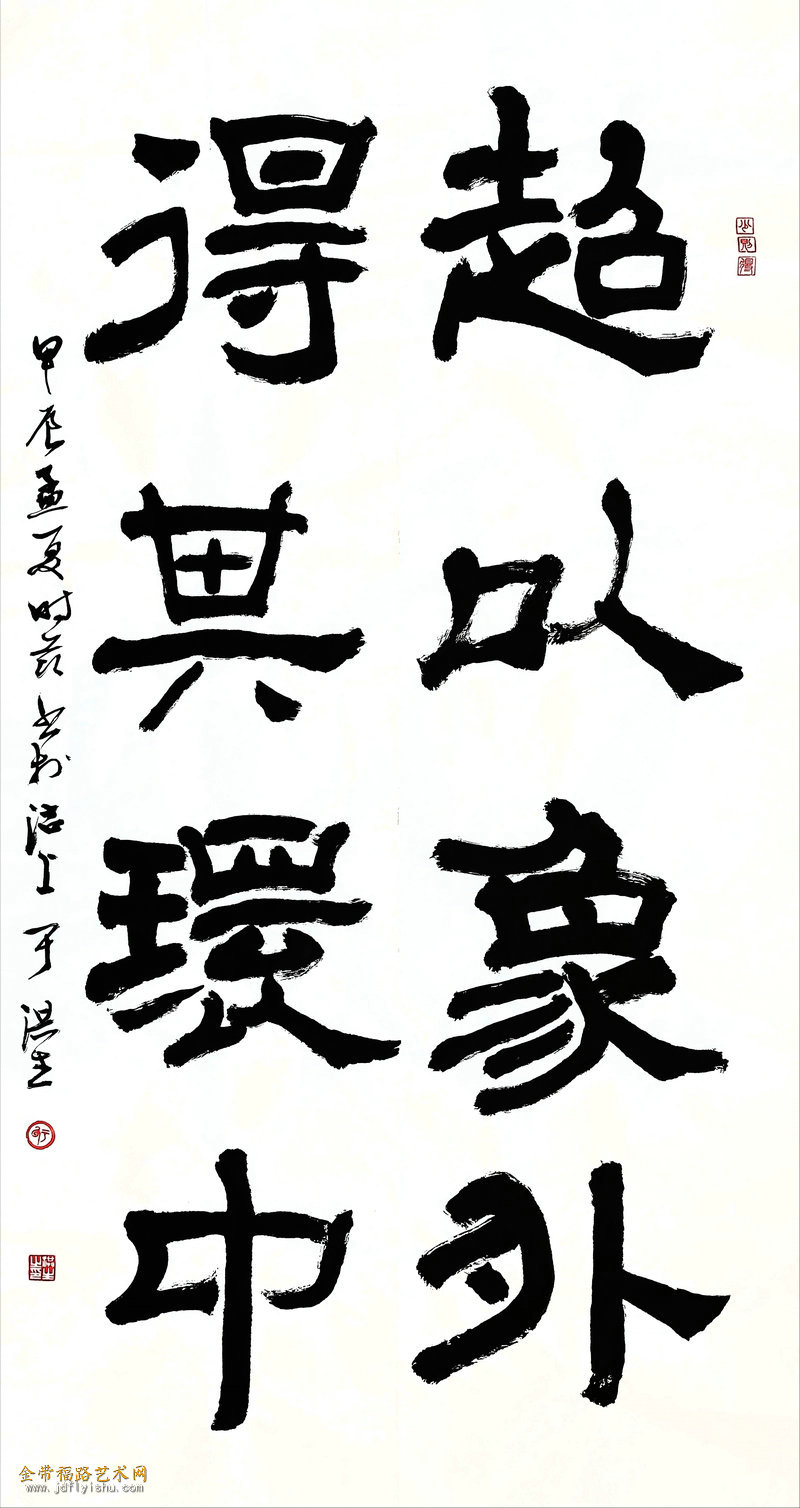 超以象外
得其環中
甲辰孟夏时节书於沽上 于洪
金带福路艺术网
www.jdflyishu.com